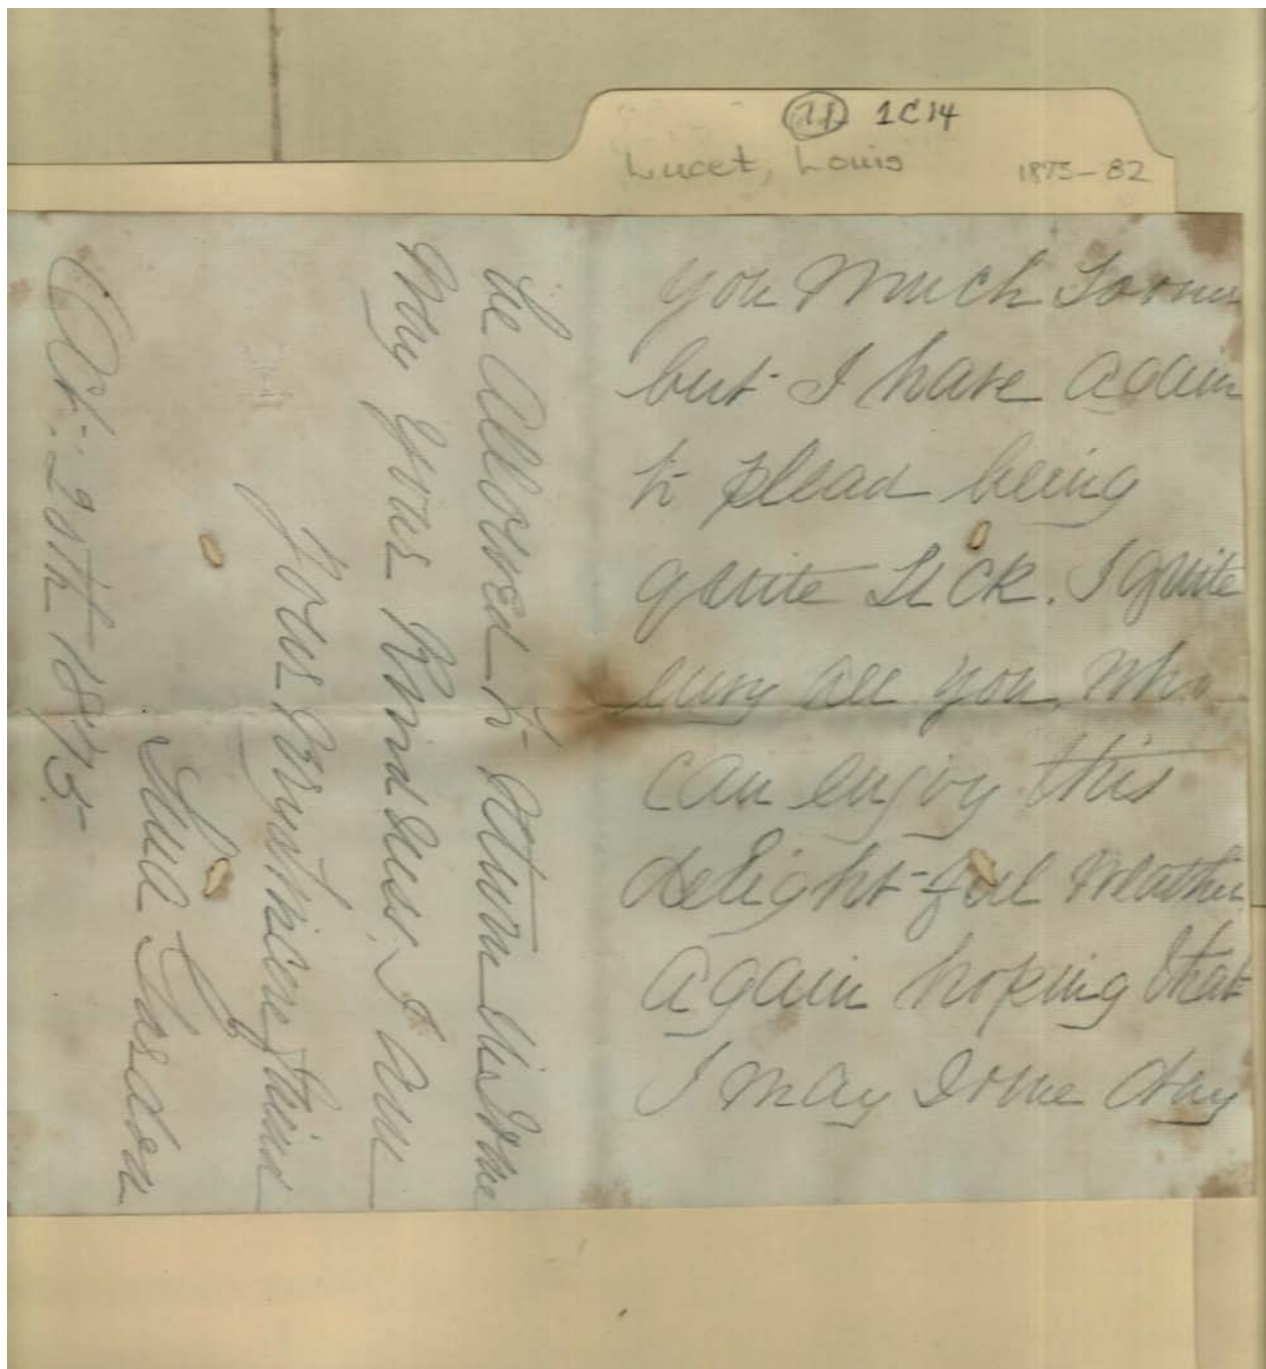 1C14
Lucet, Louis 1875-82
you much sooner
but I have again
to plead being
quite sick. I quite
envy all you who
can enjoy this
delightful weather
again hoping that
I may some day
be allowed to return in some
way your kindness, I am
your very sincere friend
Oct: 20th 1875